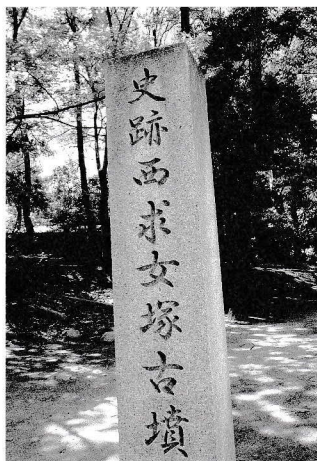 史跡西求女塚古墳